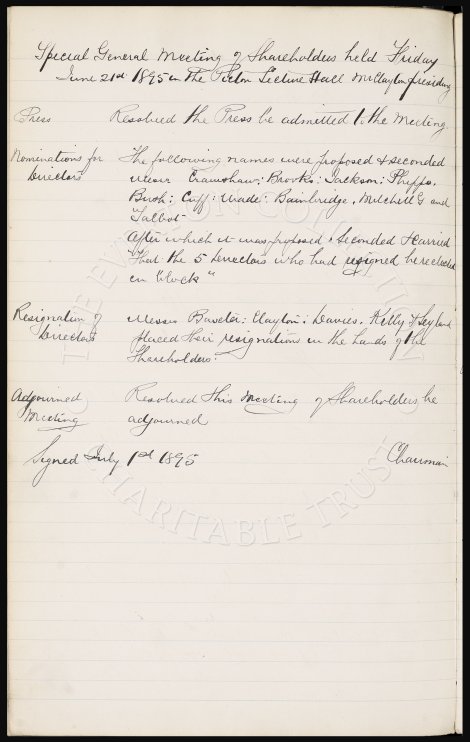 Special General Meeting of Shareholders held Friday
June 21st 1895 in The Picton Lecture Hall Mr Clayton presiding
Press Resolved the Press be admitted to the Meeting.
Nominations for The following names were proposed & seconded
Directors Messrs Crawshaw; Brooks: Jackson; Phipps,
Bush: Cuff: Wade: Bainbridge, Mitchell G and
Talbot
After which it was proposed, Seconded & carried
"That the 5 Directors who had resigned be reelected
en "block"
Resignation of Messrs Baxter: Clayton: Davies, Kelly & Leyland
Directors placed their resignations in the hands of the
Shareholders.
Adjourned Resolved this Meeting of Shareholders be
Meeting adjourned
Signed July 1st 1895 Chairman
THE EVERTON COLLECTION
CHARITABLE TRUST